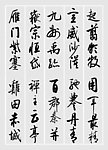 起翦頗牧用軍最精
宣威沙漠馳譽丹青
九州禹跡百郡秦并
嶽宗恒岱禪主云亭
雁門紫塞雞田赤城